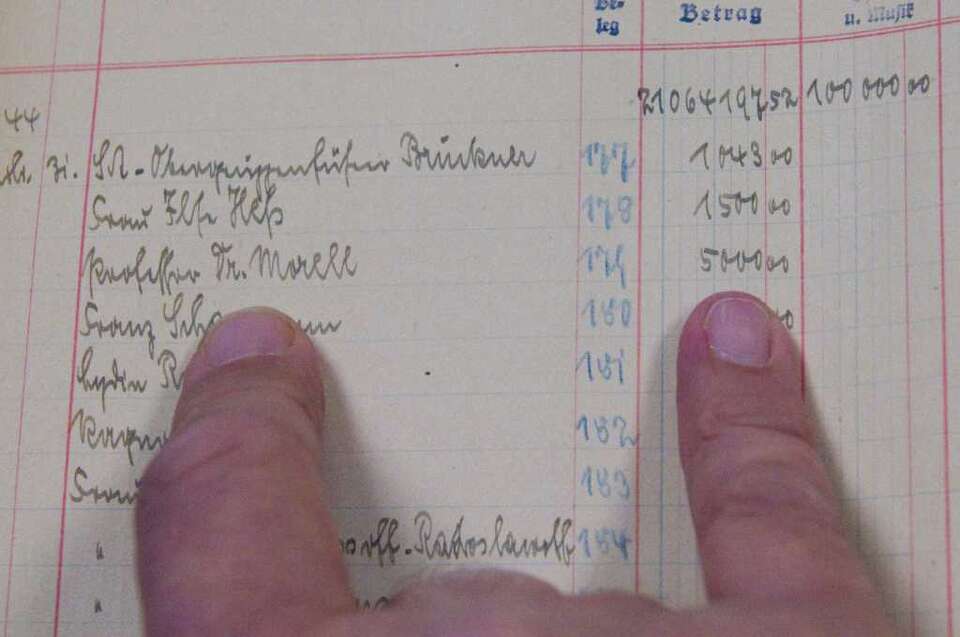 Be- Betrag
leg u. Musik
44 2106419752 100 000 00
31. SA-Obergruppenführer Brückner 177 1043 00
Frau Ilse Heß 178 1500 00
Professor Dr. Morell 179 5000 00
Franz 180
Lydia 181
182
Frau 183
" -Radoslawoff 184
"